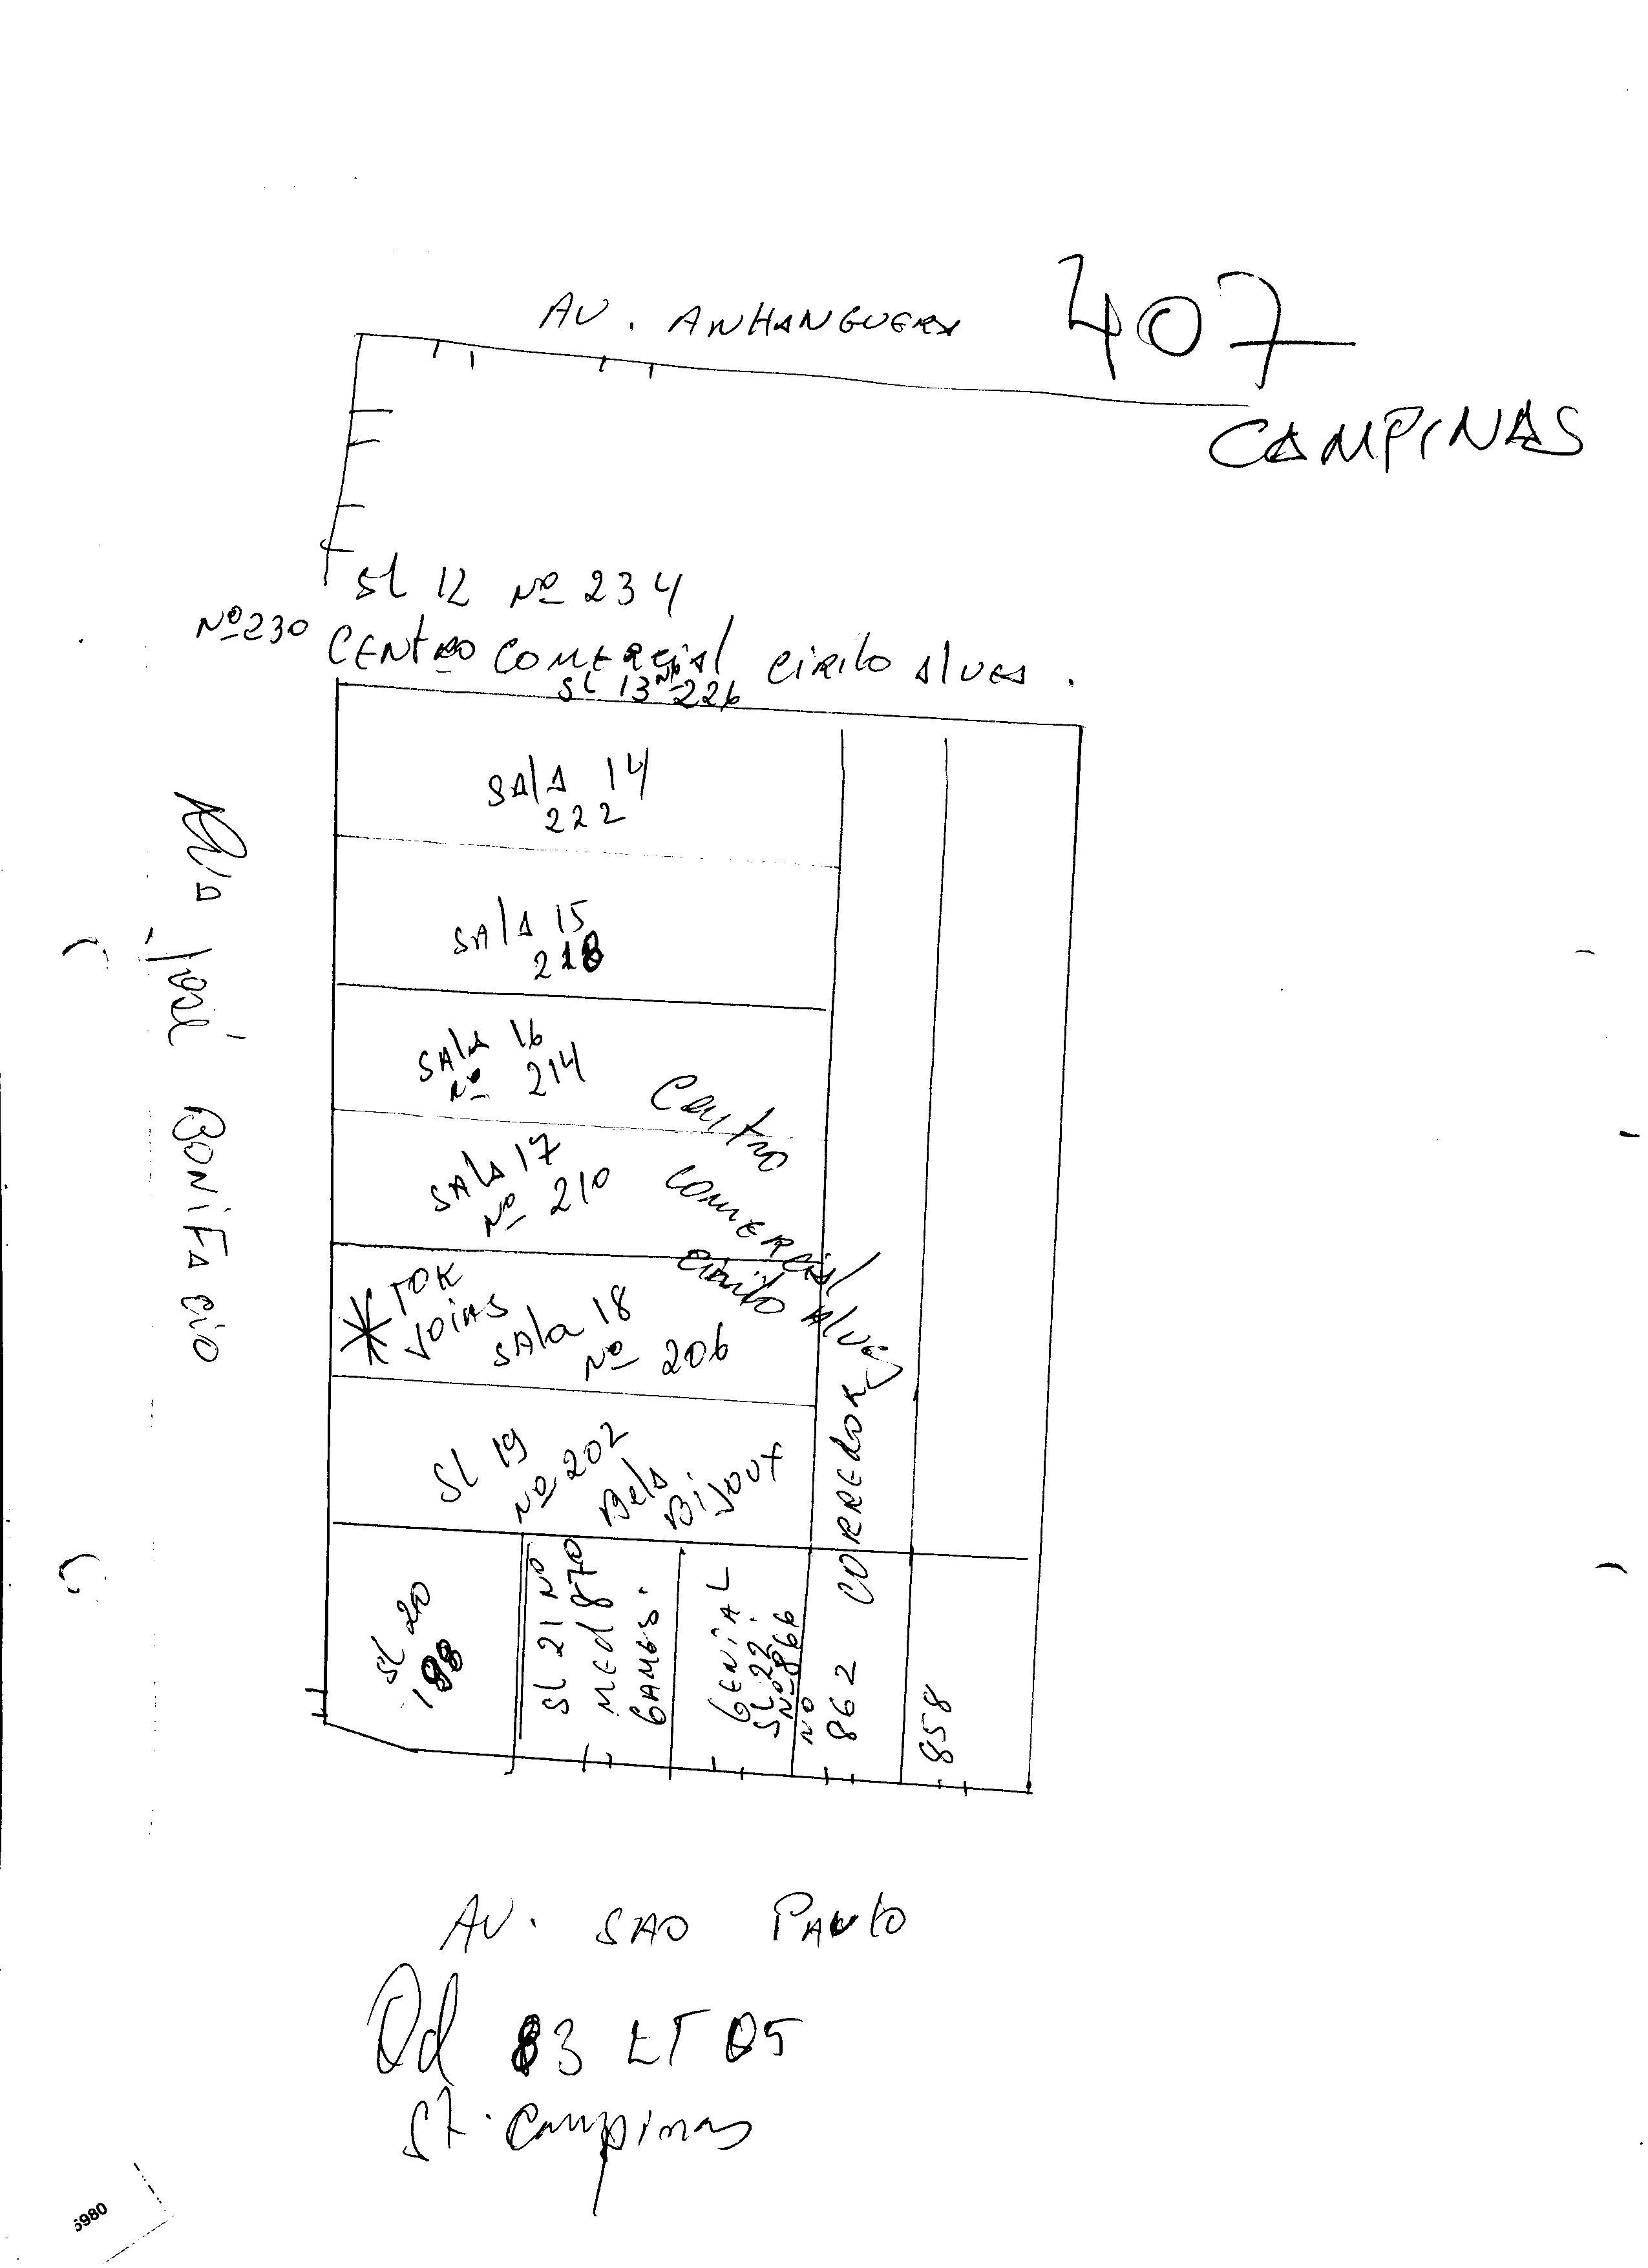 AV. ANHANGUERA
407
CAMPINAS
Sl 12 Nº 234
Nº 230
CENTRO COMERCIAL CIRILO ALVES.
SL 13 Nº 226
SALA 14
222
SALA 15
218
SALA 16
Nº 214
SALA 17
Nº 210
Centro
COMERCIAL
CIRILO ALVES
* TOK
JOIAS
SALA 18
Nº 206
Sl 19
Nº 202
Bela
Bijoux
CORREDOR
SL 20
198
SL 21 Nº
870
MEd
GAMES.
GENIAL
SL 22
Nº 866
Nº
862
858
RUA José BONIFACIO
AV. SAO PAULO
Qd 83 LT 05
St. Campinas